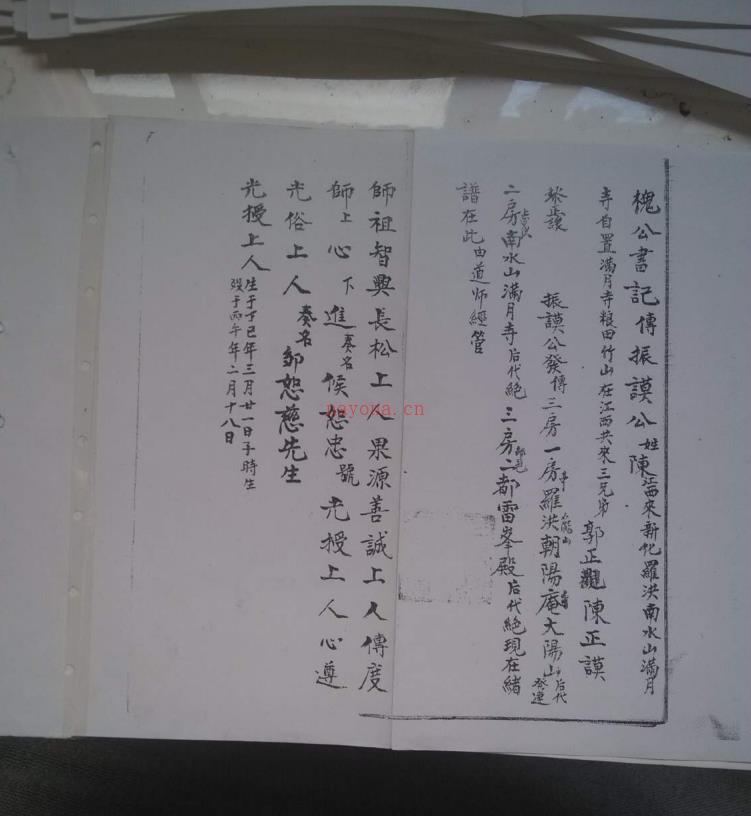 槐公書記傳振謨公姓陳江西來新化羅洪南水山滿月
寺自置滿月寺粮田竹山在江西共來三兄弟 郭正觀 陳正謨
振謨公發傳三房一房羅洪朝陽庵大陽山后代
二房南水山滿月寺后代絕 三房二都雷峯殿后代絕現在緒
譜在此由道师經管
師祖智興長松上人果源善誠上人傳度
師上心下進奏名候恕忠號光授上人心遵
光俗上人奏名邹恕慈先生
光授上人生于丁巳年三月廿一日子時生
殁于丙午年二月十八日
nayona.cn